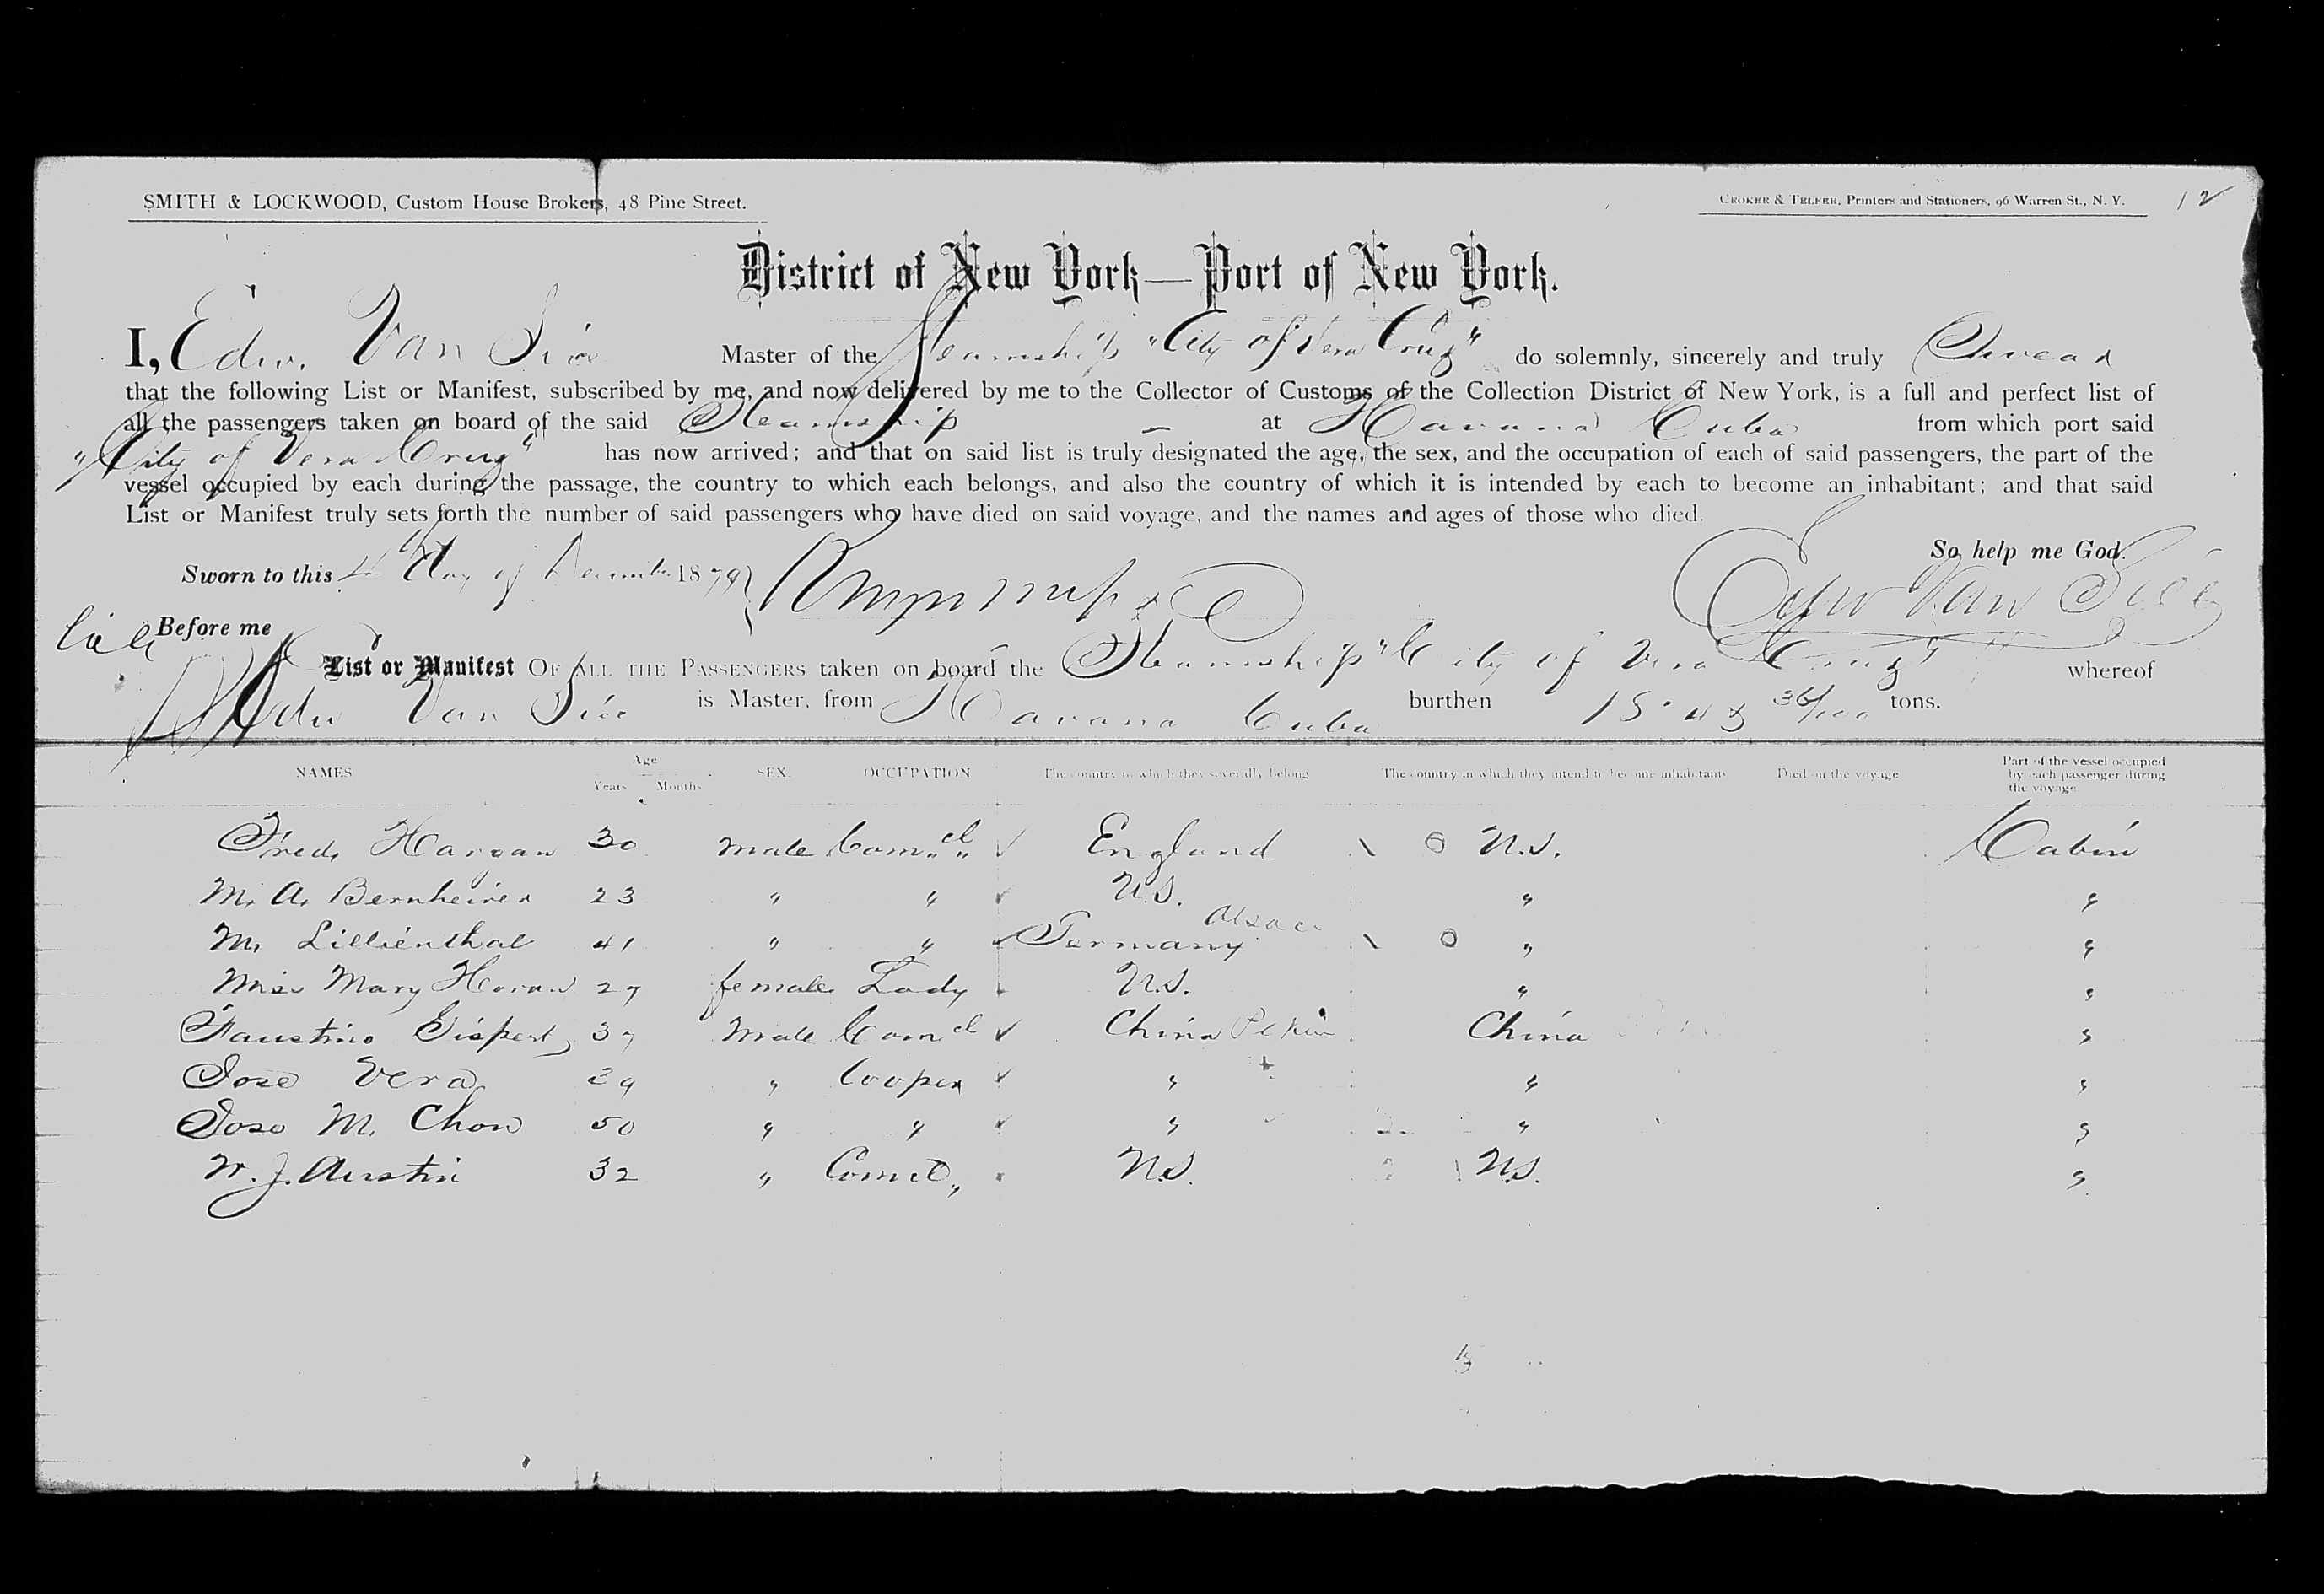 SMITH & LOCKWOOD, Custom House Brokers, 48 Pine Street.
CROKER & TELFER, Printers and Stationers, 96 Warren St., N. Y. 12
District of New York—Port of New York.
I, Edw. Van Sice Master of the Steamship "City of Vera Cruz" do solemnly, sincerely and truly Swear
that the following List or Manifest, subscribed by me, and now delivered by me to the Collector of Customs of the Collection District of New York, is a full and perfect list of
all the passengers taken on board of the said Steamship at Havana Cuba from which port said
"City of Vera Cruz" has now arrived; and that on said list is truly designated the age, the sex, and the occupation of each of said passengers, the part of the
vessel occupied by each during the passage, the country to which each belongs, and also the country of which it is intended by each to become an inhabitant; and that said
List or Manifest truly sets forth the number of said passengers who have died on said voyage, and the names and ages of those who died.
So help me God.
Sworn to this 4th day of December 1879 Edw Van Sice
Before me
List or Manifest OF ALL THE PASSENGERS taken on board the Steamship "City of Vera Cruz" whereof
Edw Van Sice is Master, from Havana Cuba burthen 1543 36/100 tons.
NAMES Age Years Months SEX. OCCUPATION The country to which they severally belong The country in which they intend to become inhabitants Died on the voyage Part of the vessel occupied by each passenger during the voyage
Fred. 30 male Com'cl" England O U.S. Cabin
M. A. Bernheimer 23 " " U.S. " "
M. Lilliënthal 41 " " Germany Alsace O " "
Miss Mary 27 female Lady U.S. " "
Faustino Gispert 37 male Comcl China Pekin China "
Jose Vera 39 " Cooper " " "
Jose M. Chon 50 " " " " "
W. J. Austin 32 " Comcl" U.S. U.S. "